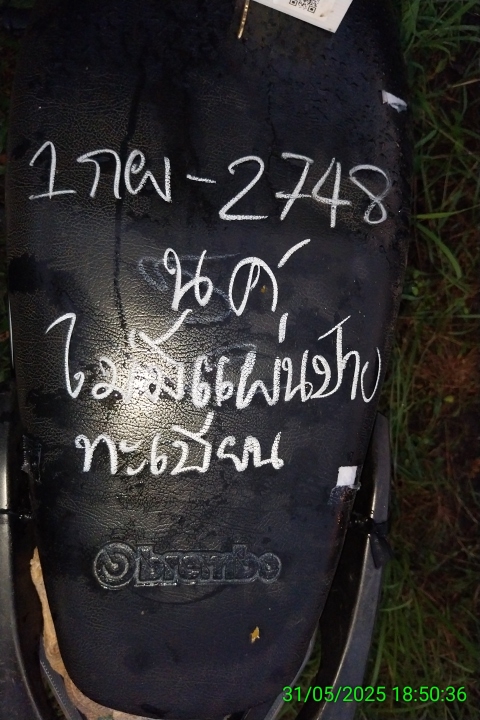 1กผ-2748
น ค
ไม่มีแผ่นป้าย
ทะเบียน
brembo
31/05/2025 18:50:36